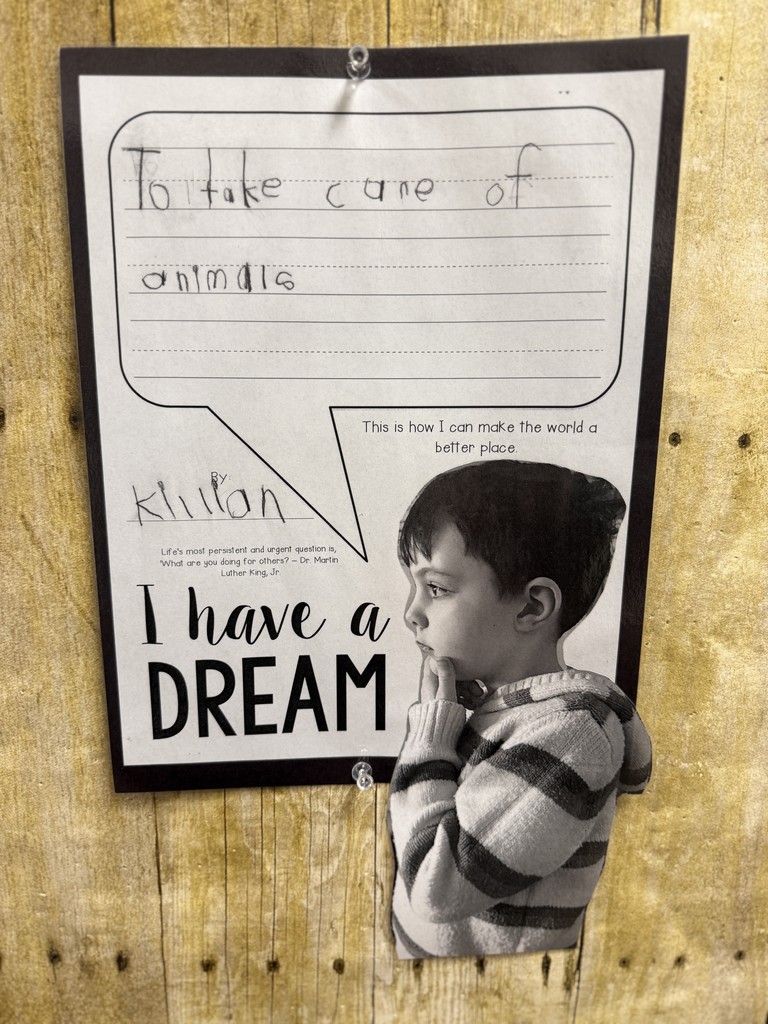 To take care of
animals
This is how I can make the world a
better place.
By:
Killian
Life's most persistent and urgent question is,
'What are you doing for others?' – Dr. Martin
Luther King, Jr.
I have a
DREAM